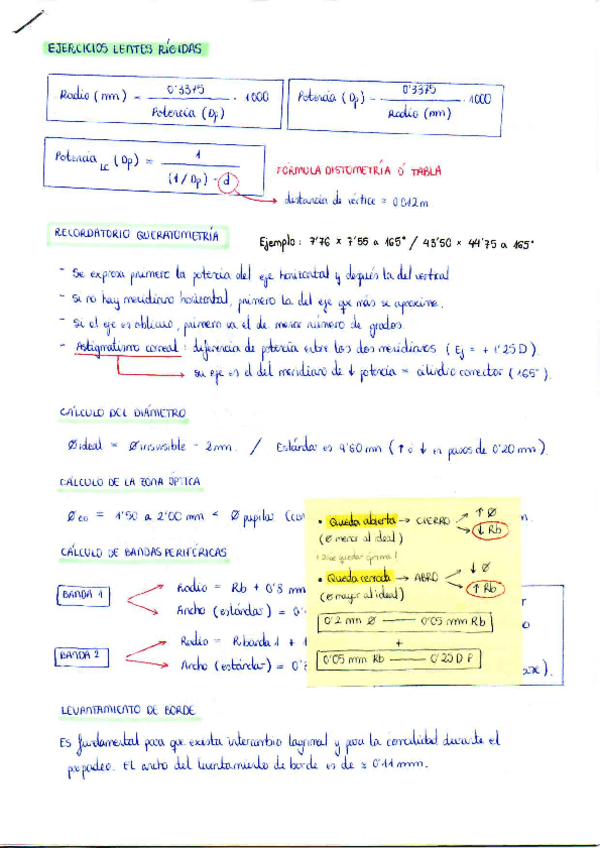 EJERCICIOS LENTES RÍGIDAS
Radio (mm) = 0'3375 / Potencia (Dp) · 1000
Potencia (Dp) = 0'3375 / Radio (mm) · 1000
Potencia LC (Dp) = 1 / (1/Dp) - d
FÓRMULA DISTOMETRÍA Ó TABLA
distancia de vértice = 0'012m
RECORDATORIO QUERATOMETRÍA
Ejemplo: 7'76 x 7'55 a 165° / 43'50 x 44'75 a 165°
- Se expresa primero la potencia del eje horizontal y después la del vertical
- Si no hay meridiano horizontal, primero la del eje que más se aproxime.
- Si el eje es oblicuo, primero va el de menor número de grados.
- Astigmatismo corneal: diferencia de potencia entre los dos meridianos (Ej = + 1'25 D).
su eje es el del meridiano de ↓ potencia = cilindro corrector (165°).
CÁLCULO DEL DIÁMETRO
Ø ideal = Ø iris visible - 2mm. / Estándar es 9'60 mm (↑ ó ↓ en pasos de 0'20 mm).
CÁLCULO DE LA ZONA ÓPTICA
Ø zo = 1'50 a 2'00 mm < Ø pupilar
CÁLCULO DE BANDAS PERIFÉRICAS
BANDA 1
Radio = Rb + 0'8 mm
Ancho (estándar) = 0'
BANDA 2
Radio = R banda 1 + 1
Ancho (estándar) = 0'
• Queda abierta → CIERRO
↑ Ø
↓ Rb
(Ø menor al ideal)
• Queda cerrada → ABRO
↓ Ø
↑ Rb
(Ø mayor al ideal)
0'2 mm Ø —— 0'05 mm Rb
+
0'05 mm Rb —— 0'25 D P
LEVANTAMIENTO DE BORDE
Es fundamental para que exista intercambio lagrimal y para la comodidad durante el
parpadeo. El ancho del levantamiento de borde es de ≈ 0'11 mm.